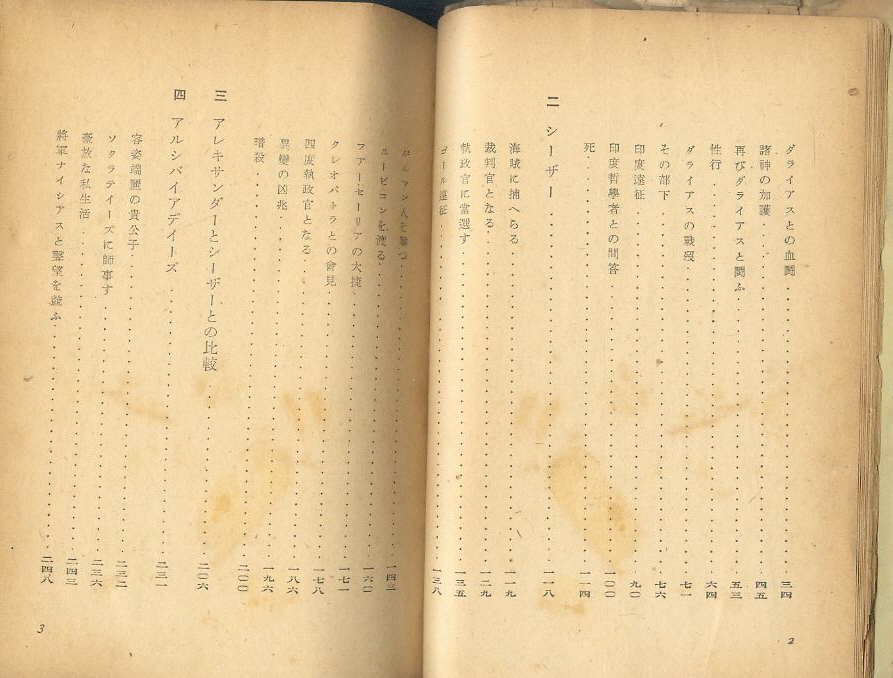 ダライアスとの血鬪……三四
諸神の加護……四五
再びダライアスと鬪ふ……五三
性行……六四
ダライアスの戰歿……七一
その部下……七六
印度遠征……九〇
印度哲學者との問答……一〇〇
死……一一四
二 シーザー……一一八
海賊に捕へらる……一一九
裁判官となる……一二九
執政官に當選す……一三五
ゴール遠征……一三八
2
ゲルマン人を擊つ……一四三
ルービコンを渡る……一六〇
フアーセーリアの大捷……一七一
クレオパトラとの會見……一七八
四度執政官となる……一八六
異變の凶兆……一九六
暗殺……二〇〇
三 アレキサンダーとシーザーとの比較……二〇六
四 アルシバイアデイーズ……二三一
容姿端麗の貴公子……二三二
ソクラテイーズに師事す……二三六
豪放な私生活……二四三
將軍ナイシアスと聲望を竝ふ……二四八
3